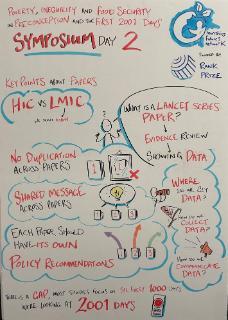 Poverty, Inequality and Food Security
in Preconception and the First 2001 Days
Symposium Day 2
Nourishing
Funded by
Bank
Prize
Key Points About Papers
HIC vs LMIC
What is a Lancet Series
Paper?
Evidence Review
Showing Data
No Duplication
Across Papers
1
Shared Message
Across Papers
1 2 3
Each Paper Should
Have its Own
Policy Recommendations
Where
Do We Get
Data?
How Do We
Collect
Data?
How Do We
Communicate
Data?
There is a Gap, Most Studies Focus on 1000 Days
We're Looking at 2001 Days